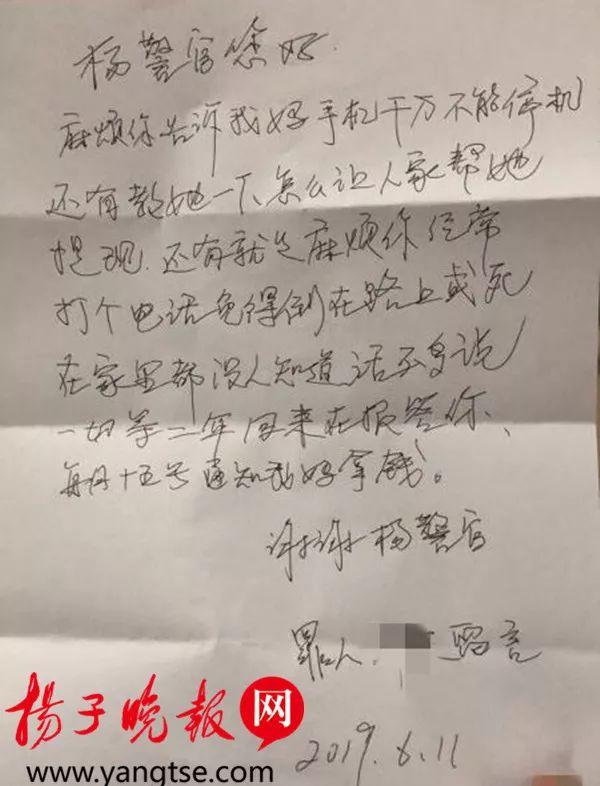 杨警官您好.
麻烦你告诉我妈手机千万不能停机
还有教她一下怎么让人家帮她
提现.还有就是麻烦你经常
打个电话免得倒在路上或死
在家里都没人知道.话不多说
一切等二年回来在报答你、
每月十五号通知我妈拿钱。
谢谢杨警官
罪人. 留言
2019.6.11
扬子晚报网
www.yangtse.com